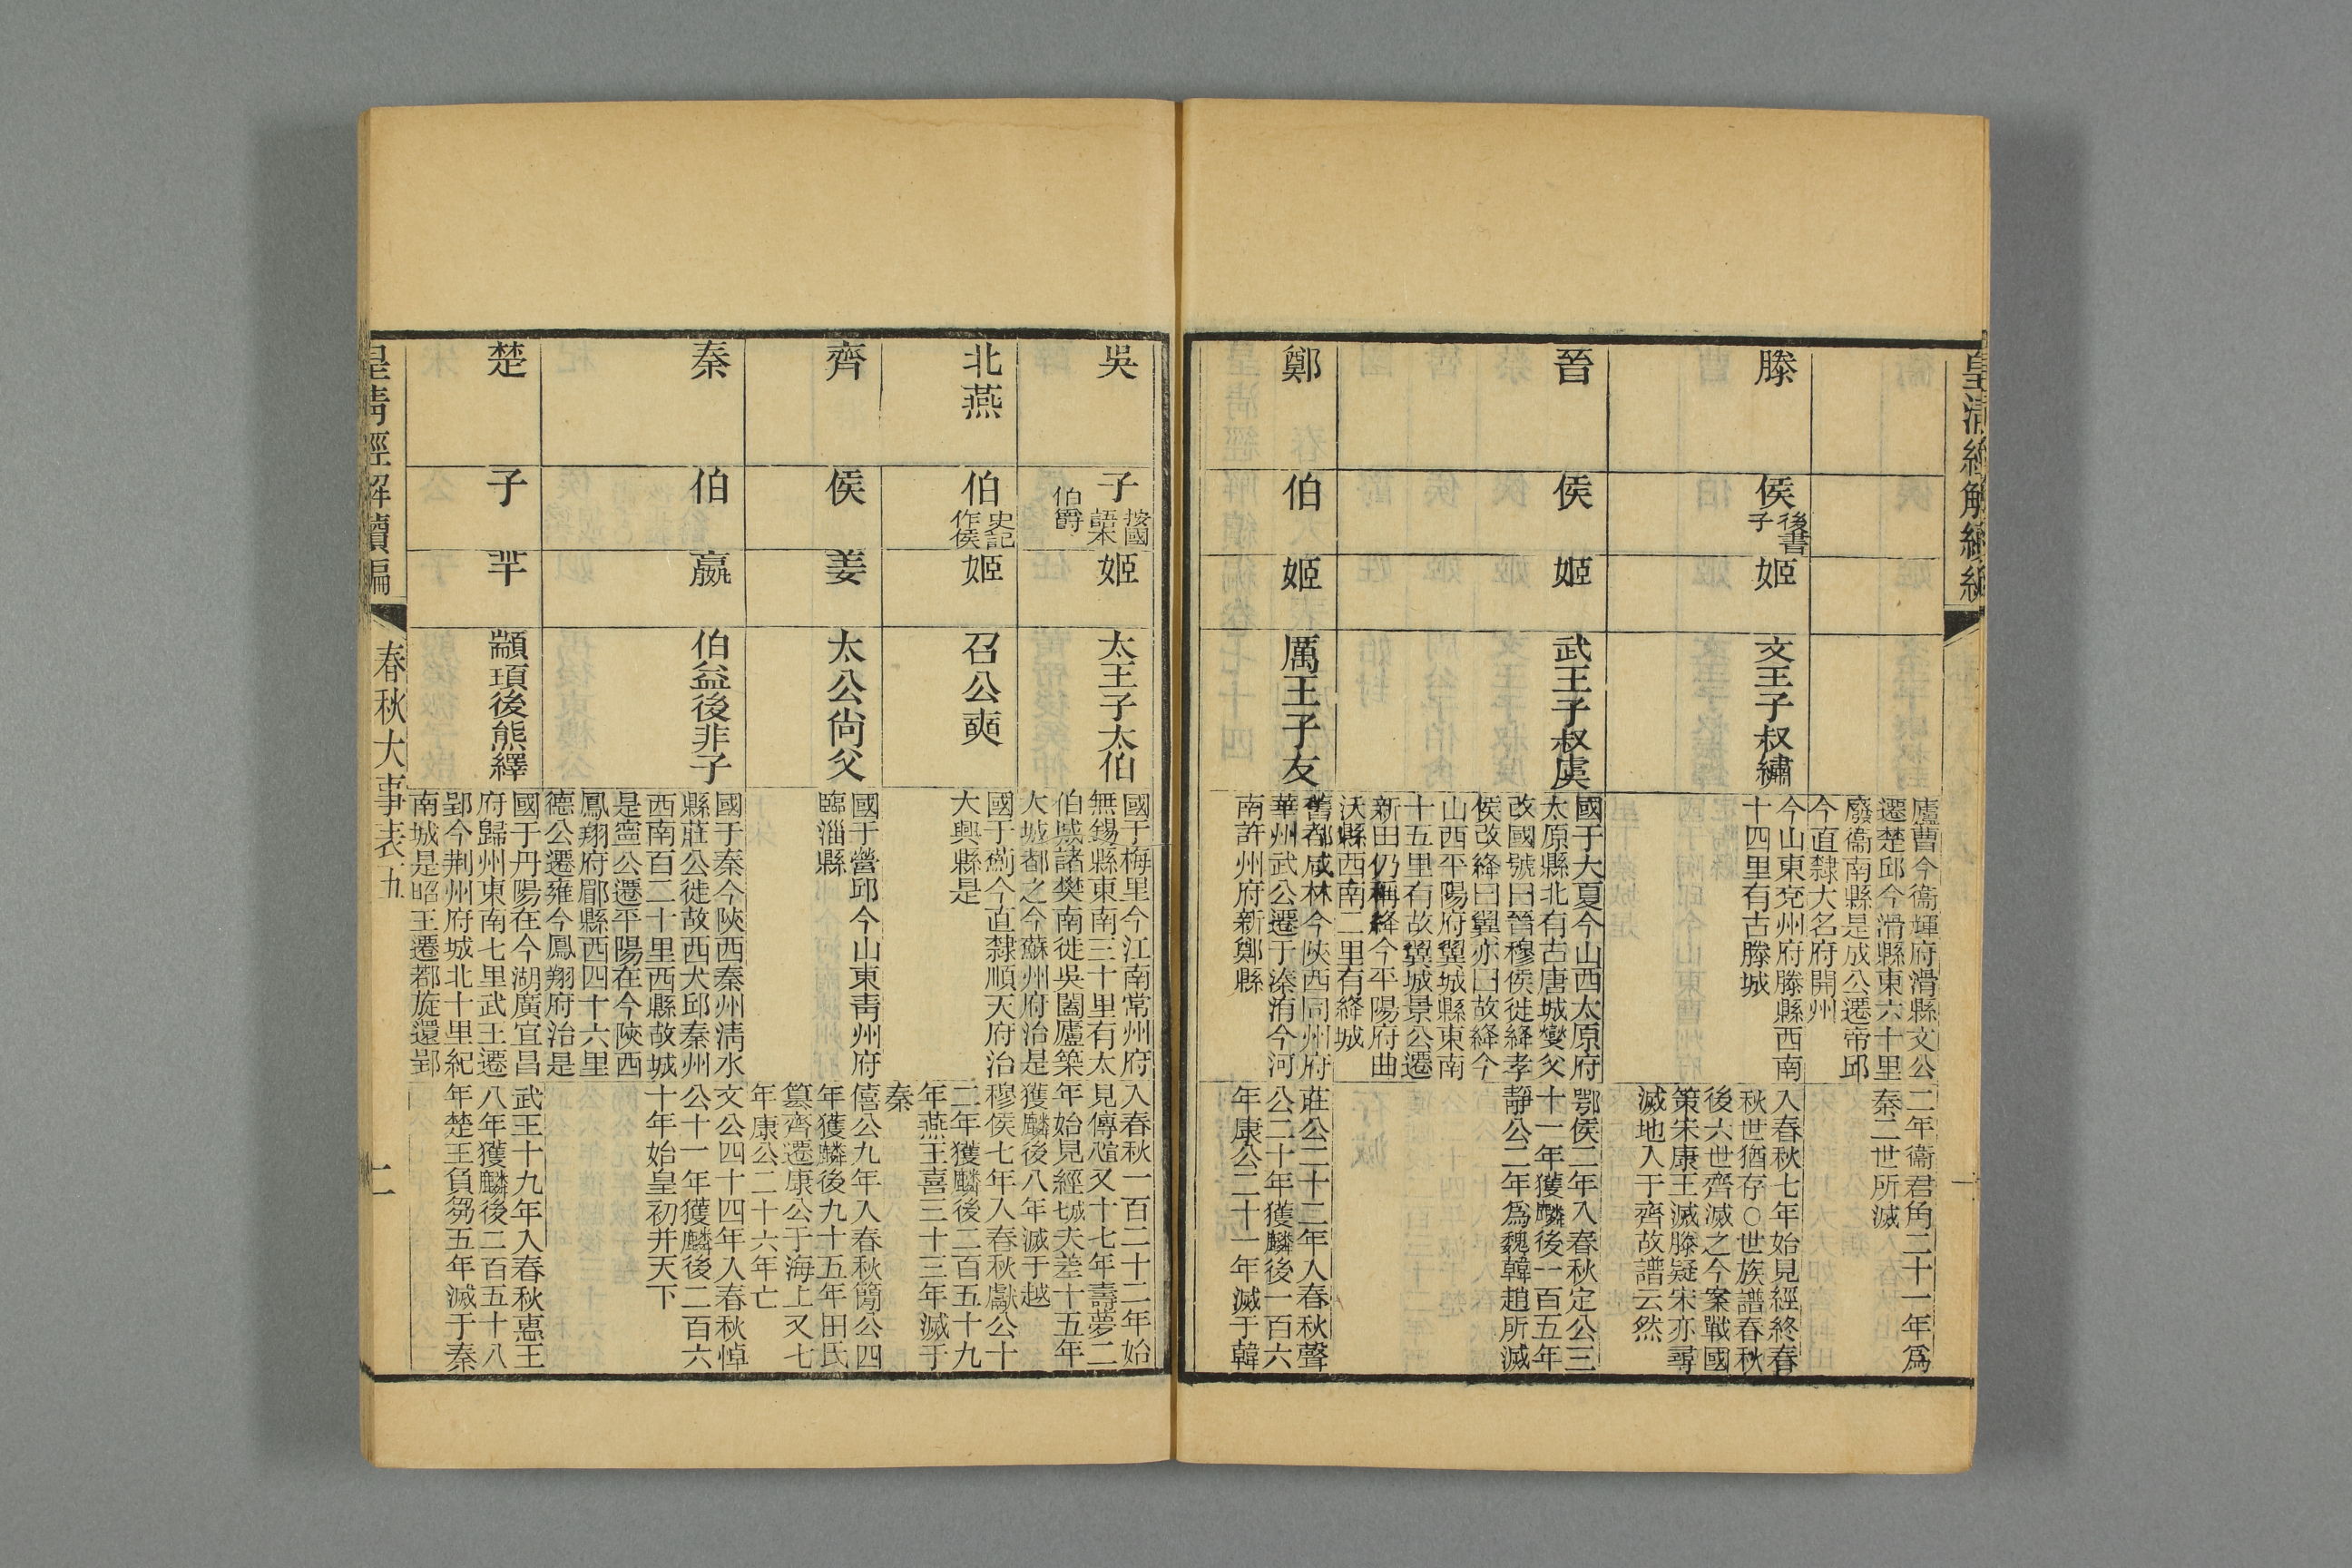 皇清經解續編
廬曹今衞輝府滑縣文公
遷楚邱今滑縣東六十里
廢衞南縣是成公遷帝邱
今直隸大名府開州
二年衞君角二十一年爲
秦二世所滅
滕
侯
後書
子
姬
文王子叔繡
今山東兗州府滕縣西南
十四里有古滕城
入春秋七年始見經終春
秋世猶存○世族譜春秋
後六世齊滅之今案戰國
策宋康王滅滕疑宋亦尋
滅地入于齊故譜云然
晉
侯
姬
武王子叔虞
國于大夏今山西太原府
太原縣北有古唐城燮父
改國號曰晉穆侯徙絳孝
侯改絳曰翼亦曰故絳今
山西平陽府翼城縣東南
十五里有故翼城景公遷
新田仍稱絳今平陽府曲
沃縣西南二里有絳城
鄂侯二年入春秋定公三
十一年獲麟後一百五年
靜公二年爲魏韓趙所滅
鄭
伯
姬
厲王子友
舊都咸林今陝西同州府
華州武公遷于溱洧今河
南許州府新鄭縣
莊公二十二年入春秋聲
公二十年獲麟後一百六
年康公二十一年滅于韓
吳
子
按國
語本
伯爵
姬
太王子太伯
國于梅里今江南常州府
無錫縣東南三十里有太
伯城諸樊南徙吳闔廬築
大城都之今蘇州府治是
入春秋一百二十二年始
見傳又十七年壽夢二
年始見經夫差十五年
獲麟後八年滅于越
北燕
伯
史記
作侯
姬
召公奭
國于薊今直隸順天府治
大興縣是
穆侯七年入春秋獻公十
二年獲麟後二百五十九
年燕王喜三十三年滅于
秦
齊
侯
姜
太公尙父
國于營邱今山東靑州府
臨淄縣
僖公九年入春秋簡公四
年獲麟後九十五年田氏
篡齊遷康公于海上又七
年康公二十六年亡
秦
伯
嬴
伯益後非子
國于秦今陝西秦州淸水
縣莊公徙故西犬邱秦州
西南百二十里西縣故城
是寧公遷平陽在今陝西
鳳翔府郿縣西四十六里
德公遷雍今鳳翔府治是
文公四十四年入春秋悼
公十一年獲麟後二百六
十年始皇初并天下
楚
子
羋
顓頊後熊繹
國于丹陽在今湖廣宜昌
府歸州東南七里武王遷
郢今荆州府城北十里紀
南城是昭王遷都旋還郢
武王十九年入春秋惠王
八年獲麟後二百五十八
年楚王負芻五年滅于秦
皇清經解續編
春秋大事表五
二